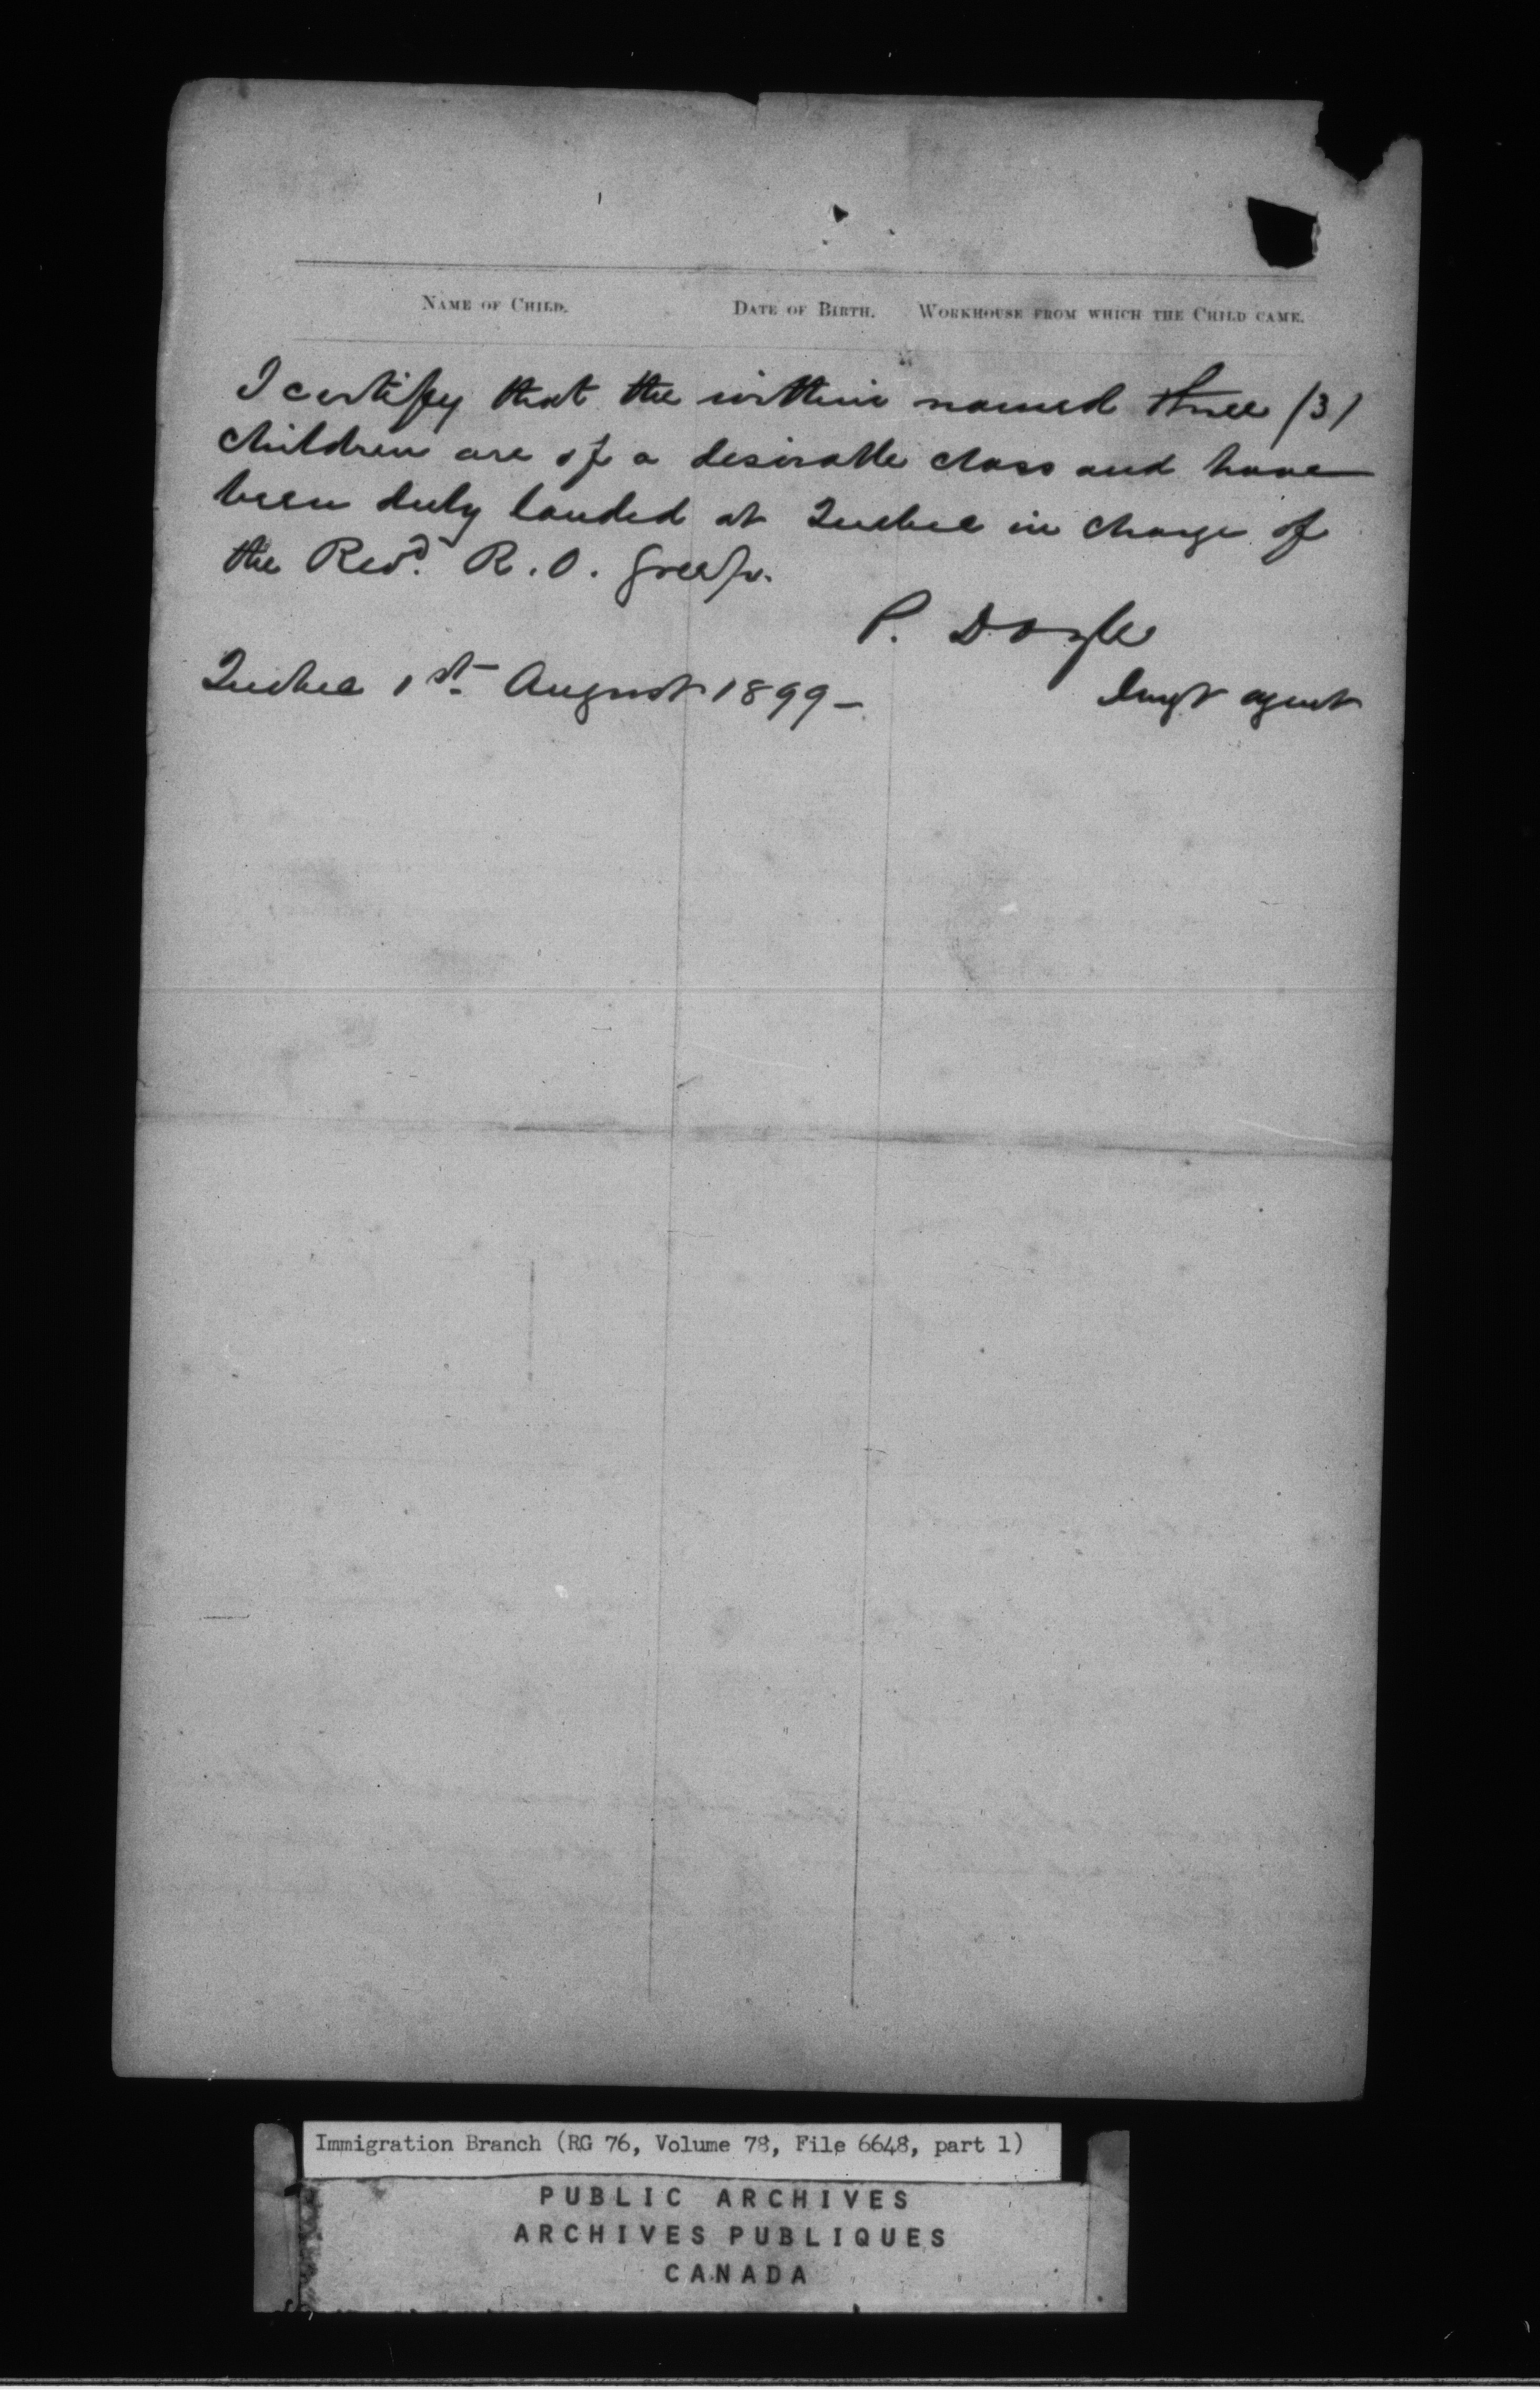 NAME OF CHILD. DATE OF BIRTH. WORKHOUSE FROM WHICH THE CHILD CAME.
I certify that the within named three (3)
children are of a desirable class and have
been duly landed at Quebec in charge of
the Revd. R. O.
P. Doyle
Quebec 1st August 1899 - Imgt agent
Immigration Branch (RG 76, Volume 78, File 6648, part 1)
PUBLIC ARCHIVES
ARCHIVES PUBLIQUES
CANADA